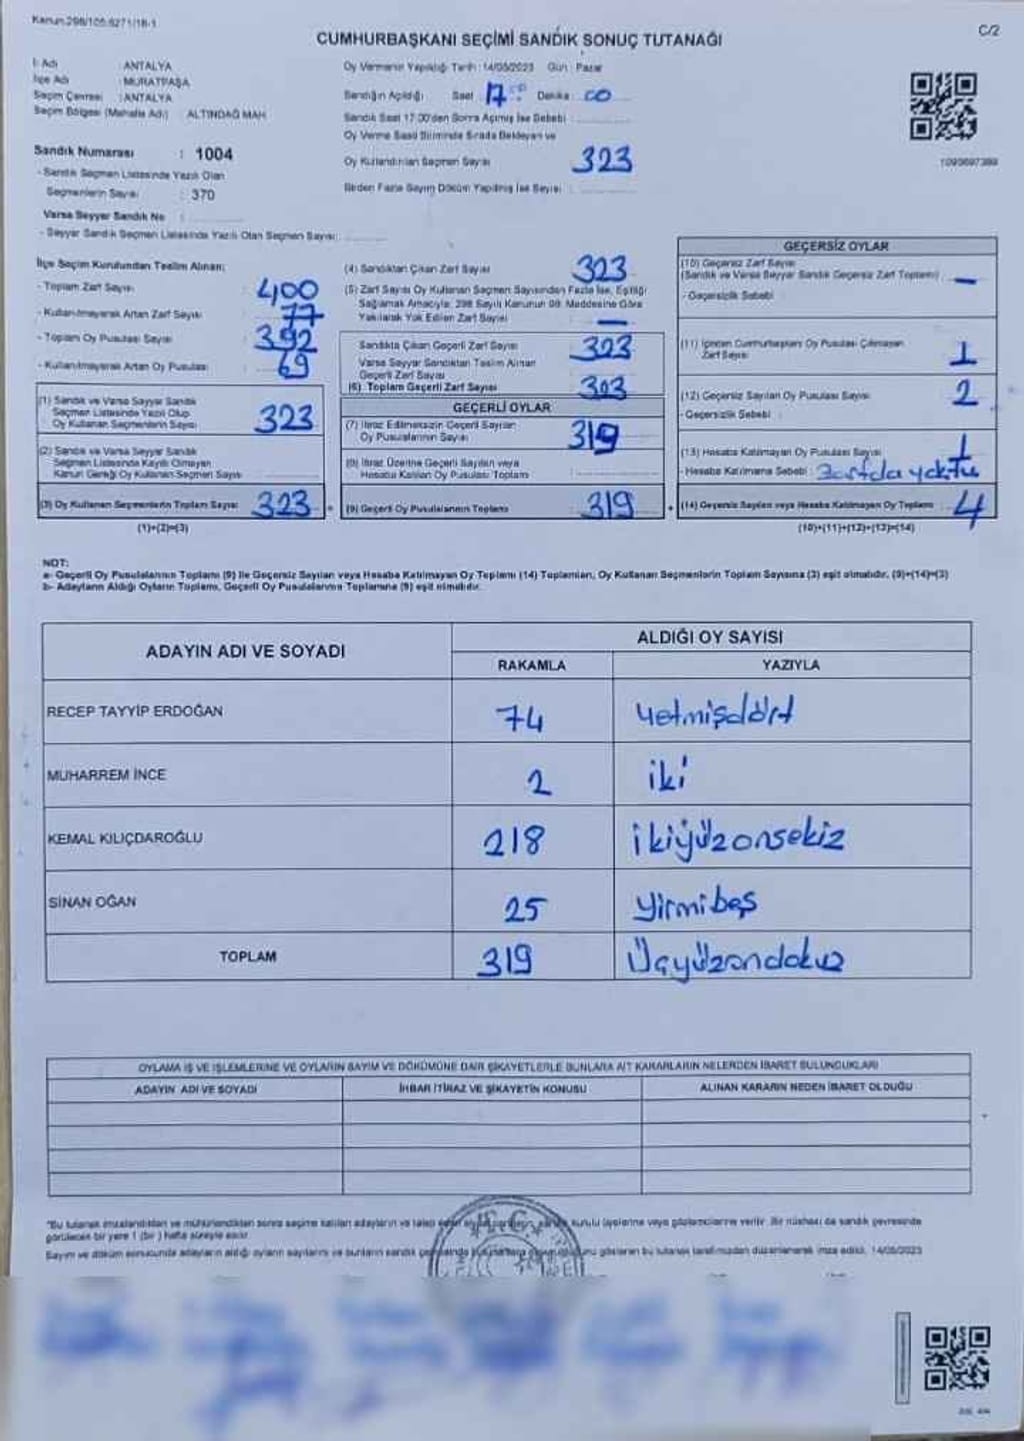 Kanun:298/105;6271/18-1
C/2
CUMHURBAŞKANI SEÇİMİ SANDIK SONUÇ TUTANAĞI
İl Adı : ANTALYA
İlçe Adı : MURATPAŞA
Seçim Çevresi : ANTALYA
Seçim Bölgesi (Mahalle Adı) ALTINDAĞ MAH
Sandık Numarası : 1004
- Sandık Seçmen Listesinde Yazılı Olan
Seçmenlerin Sayısı : 370
Varsa Seyyar Sandık No :
- Seyyar Sandık Seçmen Listesinde Yazılı Olan Seçmen Sayısı:
Oy Vermenin Yapıldığı Tarih : 14/05/2023 Gün : Pazar
Sandığın Açıldığı Saat 17 Dakika 00
Sandık Saat 17.00'den Sonra Açılmış İse Sebebi
Oy Verme Saati Bitiminde Sırada Bekleyen ve
Oy Kullandırılan Seçmen Sayısı 323
Birden Fazla Sayım Döküm Yapılmış İse Sayısı :
1090697389
İlçe Seçim Kurulundan Teslim Alınan;
- Toplam Zarf Sayısı : 400
- Kullanılmayarak Artan Zarf Sayısı : 77
- Toplam Oy Pusulası Sayısı : 392
- Kullanılmayarak Artan Oy Pusulası : 69
(1) Sandık ve Varsa Seyyar Sandık
Seçmen Listesinde Yazılı Olup
Oy Kullanan Seçmenlerin Sayısı 323
(2) Sandık ve Varsa Seyyar Sandık
Seçmen Listesinde Kayıtlı Olmayan
Kanun Gereği Oy Kullanan Seçmen Sayısı
(3) Oy Kullanan Seçmenlerin Toplam Sayısı 323
(1)+(2)=(3)
(4) Sandıktan Çıkan Zarf Sayısı 323
(5) Zarf Sayısı Oy Kullanan Seçmen Sayısından Fazla İse, Eşitliği
Sağlamak Amacıyla; 298 Sayılı Kanunun 98. Maddesine Göre
Yakılarak Yok Edilen Zarf Sayısı —
Sandıkta Çıkan Geçerli Zarf Sayısı 323
Varsa Seyyar Sandıktan Teslim Alınan
Geçerli Zarf Sayısı
(6) Toplam Geçerli Zarf Sayısı 323
GEÇERLİ OYLAR
(7) İtiraz Edilmeksizin Geçerli Sayılan
Oy Pusulalarının Sayısı 319
(8) İtiraz Üzerine Geçerli Sayılan veya
Hesaba Katılan Oy Pusulası Toplamı
(9) Geçerli Oy Pusulalarının Toplamı 319
GEÇERSİZ OYLAR
(10) Geçersiz Zarf Sayısı
(Sandık ve Varsa Seyyar Sandık Geçersiz Zarf Toplamı) —
- Geçersizlik Sebebi
(11) İçinden Cumhurbaşkanı Oy Pusulası Çıkmayan
Zarf Sayısı 1
(12) Geçersiz Sayılan Oy Pusulası Sayısı 2
- Geçersizlik Sebebi
(13) Hesaba Katılmayan Oy Pusulası Sayısı 1
- Hesaba Katılmama Sebebi : Zarfda yoktu
(14) Geçersiz Sayılan veya Hesaba Katılmayan Oy Toplamı 4
(10)+(11)+(12)+(13)=(14)
NOT:
a- Geçerli Oy Pusulalarının Toplamı (9) ile Geçersiz Sayılan veya Hesaba Katılmayan Oy Toplamı (14) Toplamları, Oy Kullanan Seçmenlerin Toplam Sayısına (3) eşit olmalıdır. (9)+(14)=(3)
b- Adayların Aldığı Oyların Toplamı, Geçerli Oy Pusulalarının Toplamına (9) eşit olmalıdır.
ADAYIN ADI VE SOYADI
ALDIĞI OY SAYISI
RAKAMLA YAZIYLA
RECEP TAYYİP ERDOĞAN 74 Yetmişdört
MUHARREM İNCE 2 iki
KEMAL KILIÇDAROĞLU 218 ikiyüzonsekiz
SİNAN OĞAN 25 Yirmibeş
TOPLAM 319 Üçyüzondokuz
OYLAMA İŞ VE İŞLEMLERİNE VE OYLARIN SAYIM VE DÖKÜMÜNE DAİR ŞİKAYETLERLE BUNLARA AİT KARARLARIN NELERDEN İBARET BULUNDUKLARI
ADAYIN ADI VE SOYADI İHBAR İTİRAZ VE ŞİKAYETİN KONUSU ALINAN KARARIN NEDEN İBARET OLDUĞU
"Bu tutanak imzalandıktan ve mühürlendikten sonra seçime katılan adayların ve talep eden kurulu üyelerine veya gözlemcilerine verilir. Bir nüshası da sandık çevresinde
görülecek bir yere 1 (bir) hafta süreyle asılır.
Sayım ve döküm sonucunda adayların aldığı oyların sayılarını ve bunların sandık gösteren bu tutanak tarafımızdan düzenlenerek imza edildi. 14/05/2023
T.C.